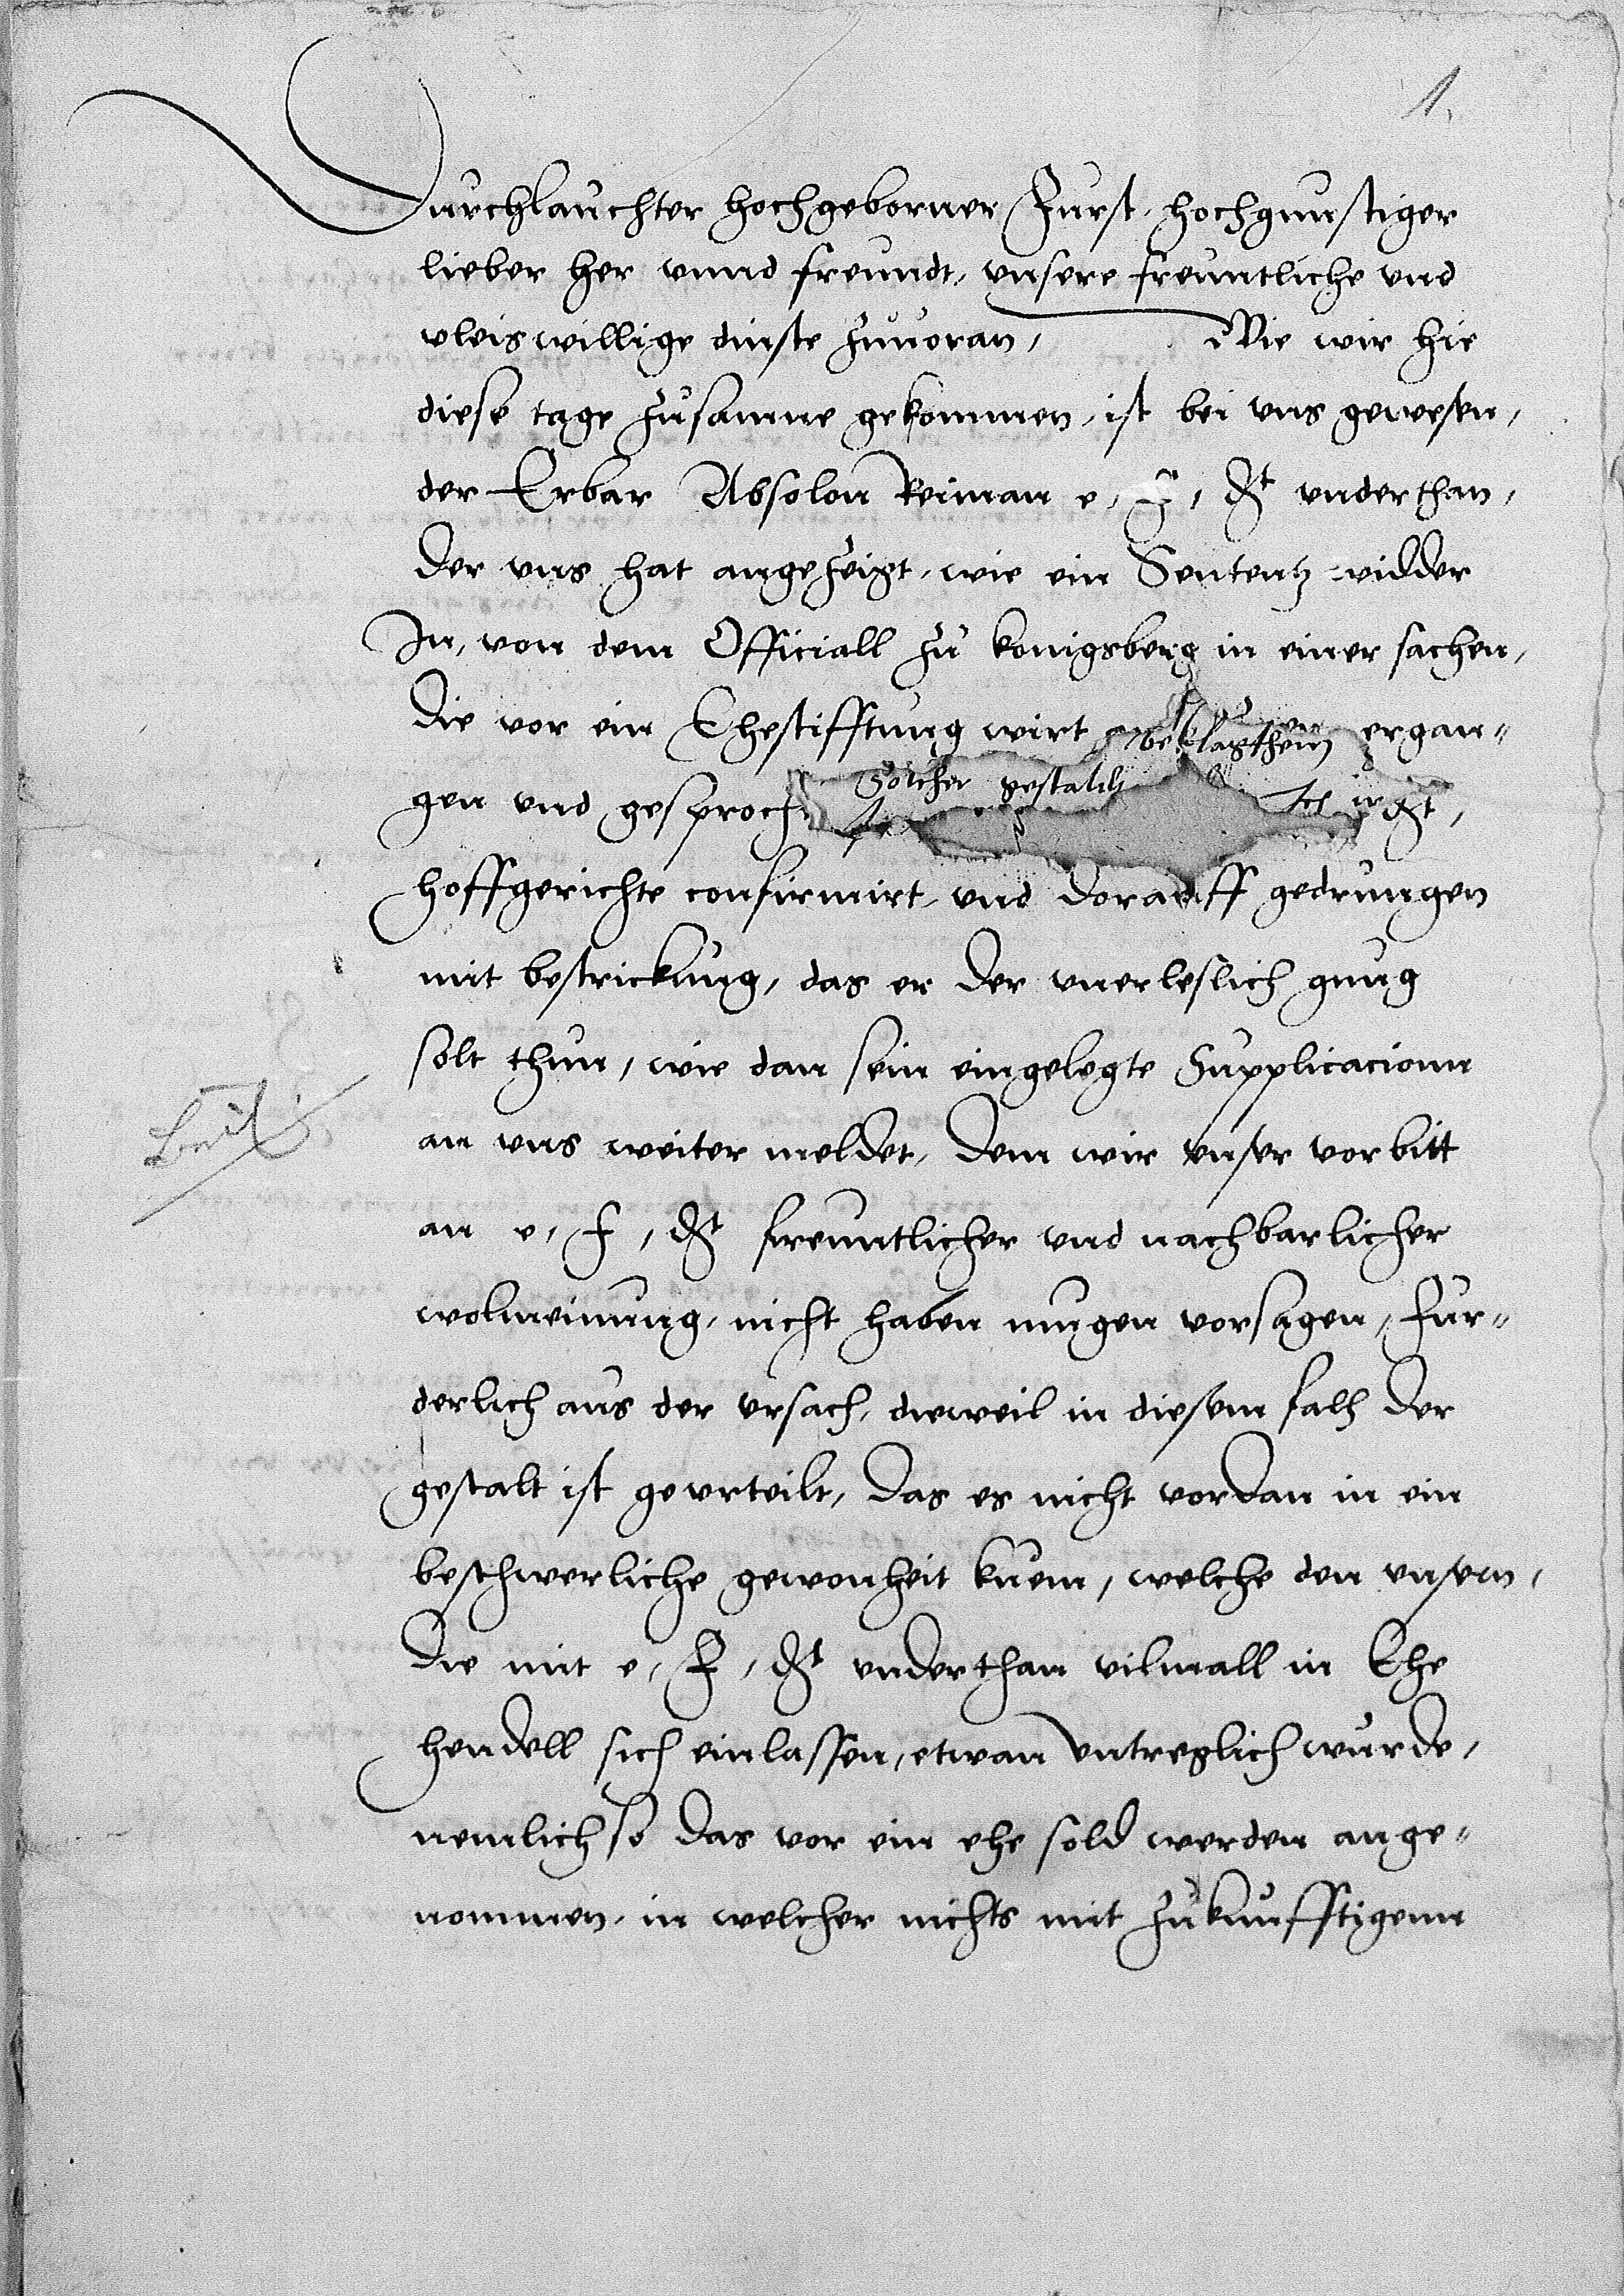 1.
Durchlauchter hochgeborner Furst, hochgunstiger
lieber her vnnd freundt, vnsere freuntliche vnd
vleis willige dinste zuuoran, Wie wir hie
diese tage zusamne gekommen, ist bei vns gewesen,
der Erbar Absolon Reiman e, F, gt vnderthan,
der vns hat angezeigt, wie ein Sententz widder
In, von dem Officiall zu konigsberg in einer sachen,
die vor ein Ehestifftung wirt ergan-
gen vnd gesproch
beklagthem
Solcher gestaldt
hoffgerichte confirmirt, vnd dorauff gedrungen
mit bestrickung, das er der vnerleslich gnug
solt thun, wie dan sein eingelegte Supplicacionn
an vns weiter meldet, dem wir vnser vorbitt
an e, f, gt freuntlicher vnd nachbarlicher
wolmeinung, nicht haben mugen vorsagen, fur-
derlich aus der vrsach, dieweil in diesem falh der
gestalt ist geurteilt, das es nicht vordan in ein
beschwerliche gewonheit kuem, welche den vnsern,
die mit e, F, gt vnderthan vilmall in Ehe
hendell sich einlassen, etwan vntreglich wurde,
nemlich so das vor ein ehe sold werden ange-
nommen, in welcher nichts mit zukunfftigenn